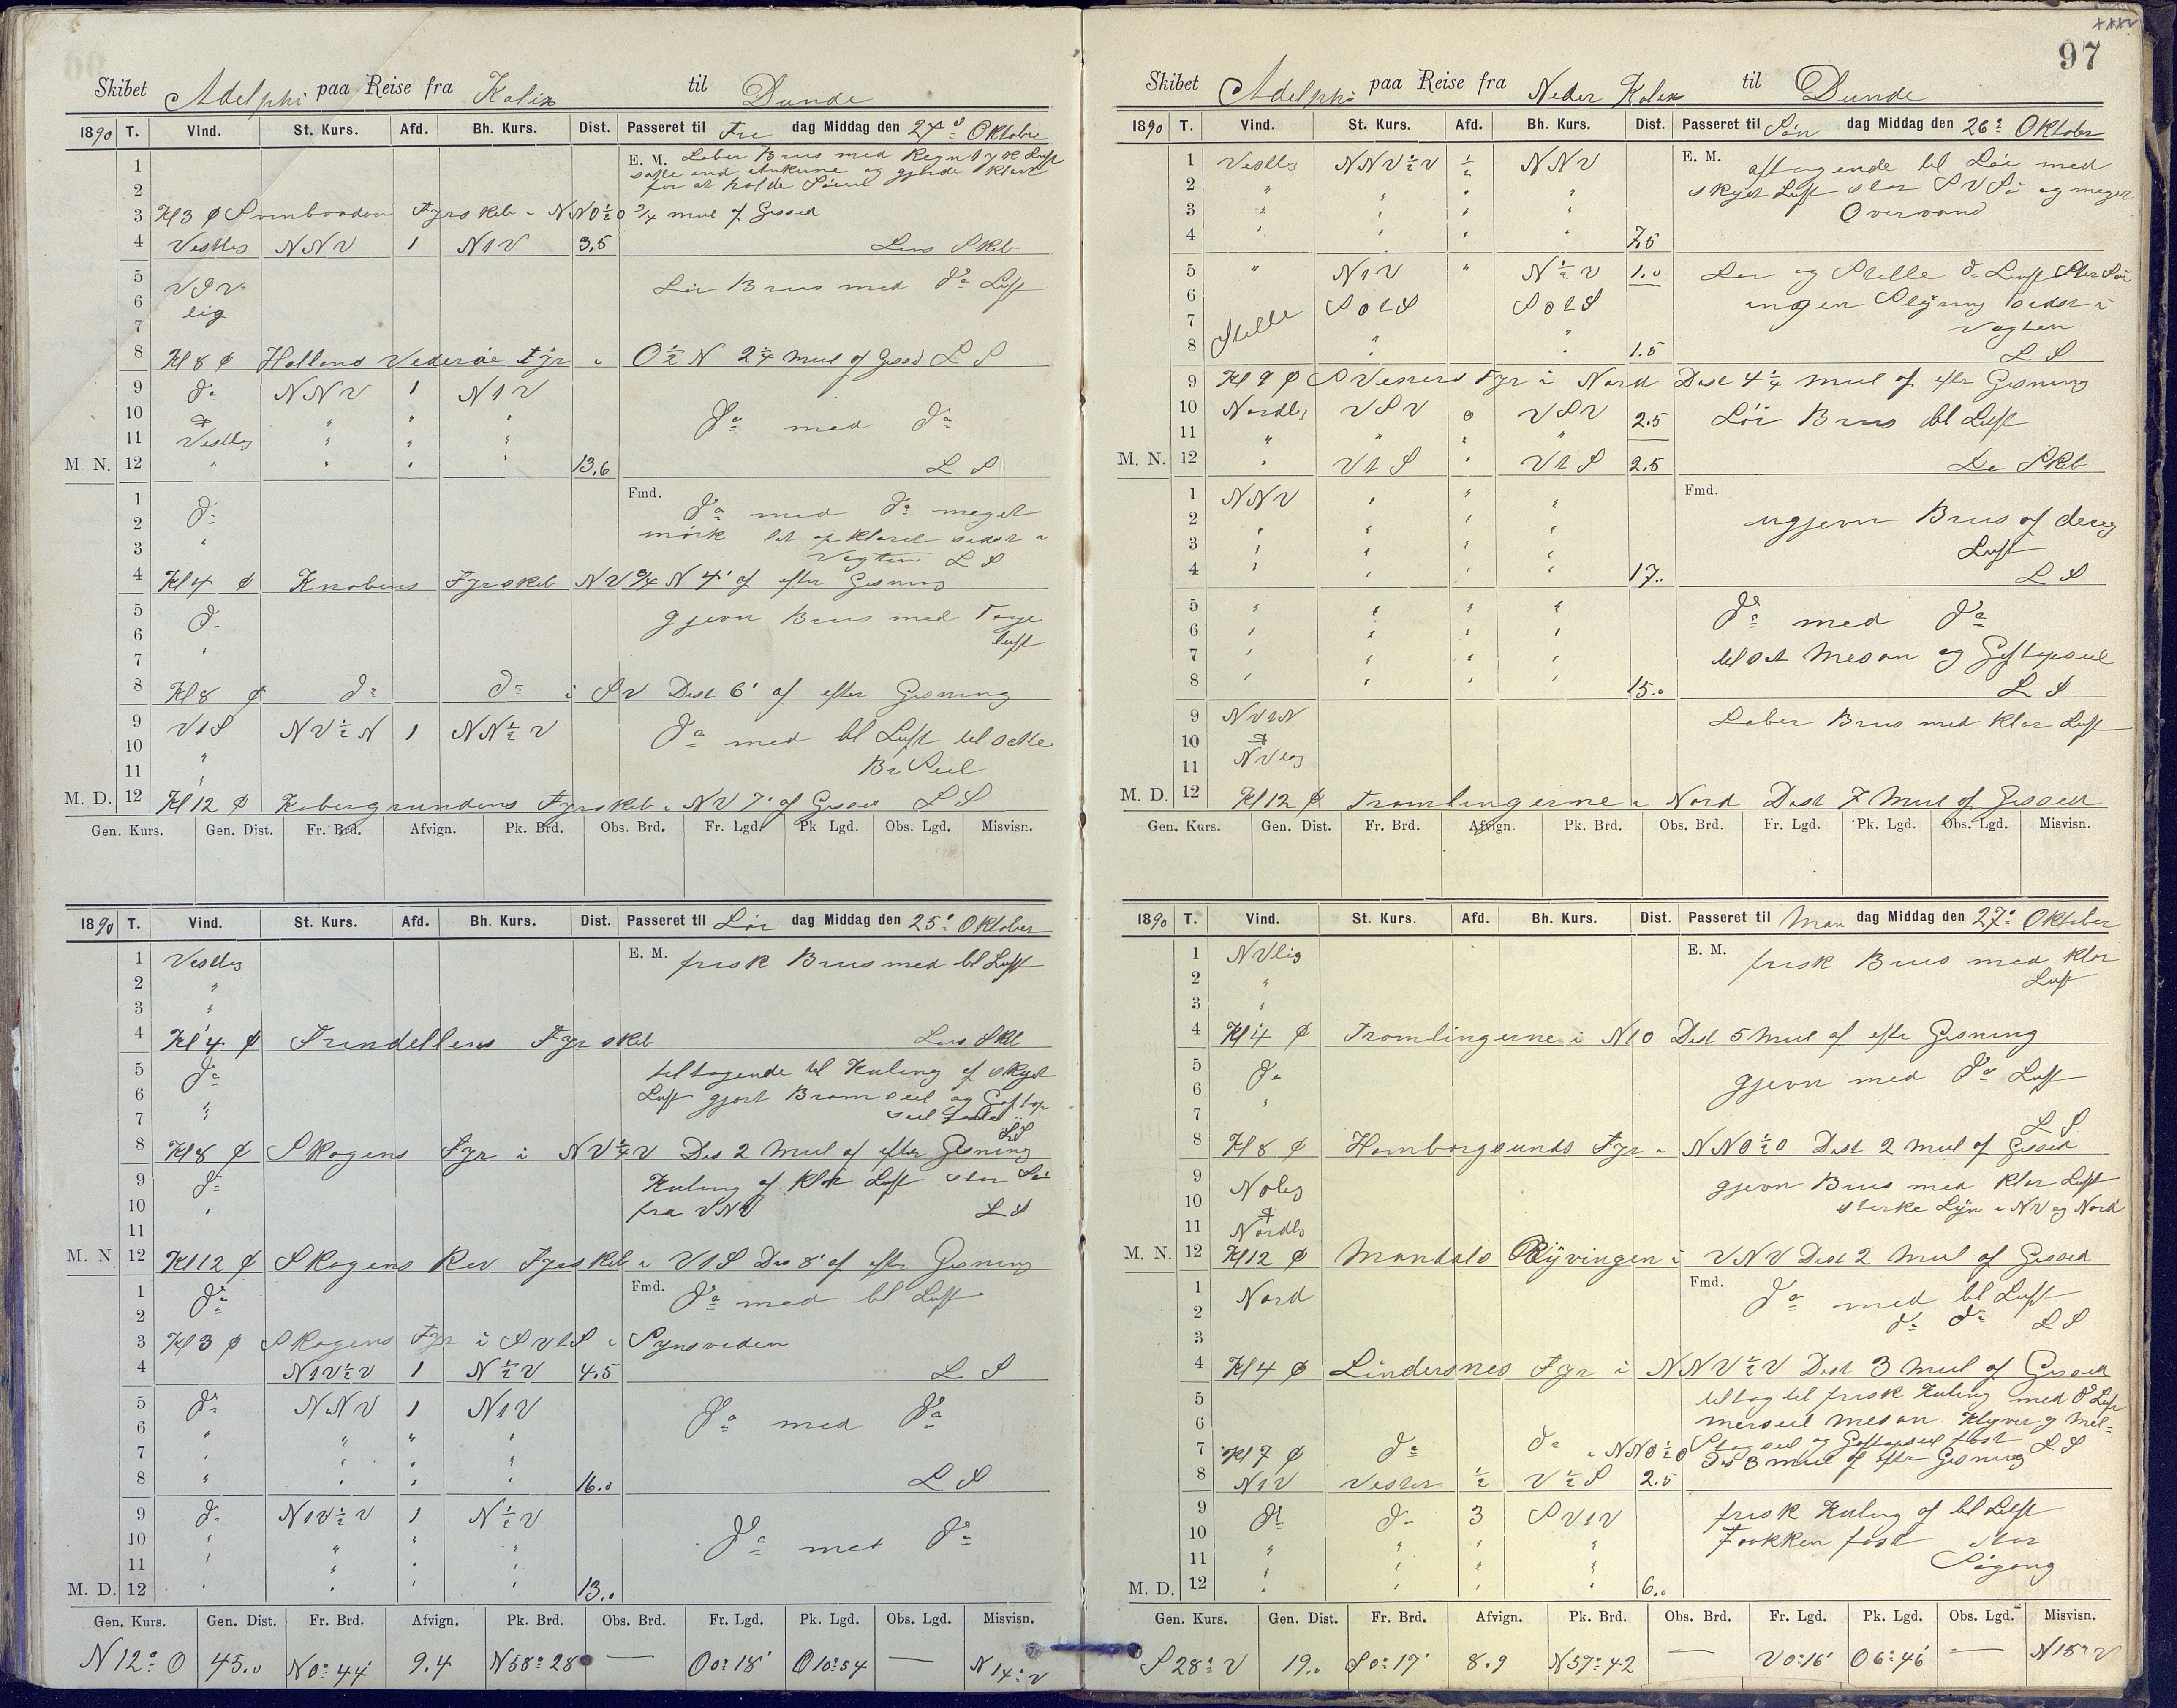 Skibet Adelphi paa Reise fra Kalix til Dunde
1890 T. Vind. St. Kurs. Afd. Bh. Kurs. Dist. Passeret til Fre dag Middag den 24de Oktober
1 E. M. Laber Brus med Regntyk Luft
2 satte ind Ankerne og gjorde klart
for at holde Søen
3 Kl 3 Fyrskib i NNO½O ¾ mul af Gissed
4 Vestlig NNV 1 N1V 3,5 Lars Skib
5 VSV Lør Brus med do Luft
6 lig
7
8 Kl 8 Hallands Vederøe Fyr i O½N 2¼ Mul af Gissed L S
9 do NNV 1 N1V
10 " " " do med do
11 Vestlig " " "
M. N. 12 " " " " 13,6 L S
1 Fmd. do med do meget
2 do mörk let opklaret sidst i
3 " Vagten L S
4 Kl 4 Knobens Fyrskib NV¾N 4' af efter Gisning
5 do gjevn Brus med Taage
6 luft
7 "
8 Kl 8 do do i SV Dist 6' af efter Gisning
9 V1S NV½N 1 NN½V do med bl Luft tilsatte
10 " Br Seil
11 "
M. D. 12 Kl 12 Kobergrundens Fyrskib i NV 7' af Gissed L S
Gen. Kurs. Gen. Dist. Fr. Brd. Afvign. Pk. Brd. Obs. Brd. Fr. Lgd. Pk Lgd. Obs. Lgd. Misvisn.
1890 T. Vind. St. Kurs. Afd. Bh. Kurs. Dist. Passeret til Lør dag Middag den 25de Oktober
1 Vestlig E. M. frisk Brus med bl Luft
2 "
3 "
4 Kl 4 Trindellens Fyrskib Lars Skb
5 do tiltagende til Kuling af skyet
6 Luft gjort Bramseil og Gaftop
7 " seil fast
8 Kl 8 Skagens Fyr i NV¼V Dis 2 Mul af efter Gisning L S
9 do Kuling af klar Luft stor Sø
10 " fra VNV L S
11
M. N 12 Kl 12 Skagens Rev Fyrskib i V1S Dis 8' af efter Gisning
1 do Fmd. do med bl Luft
2
3 Kl 3 Skagens Fyr i SV1S i Synsveden
4 N1V½V 1 N½V 4,5 L S
5 do NNV 1 N1V do med do
6 " " " "
7 " " " "
8 " " " " 16,0 L S
9 do N1V½V 1 N½V
10 " " " " do met do
11 " " " "
M. D. 12 " " " " 13,0
Gen. Kurs. Gen. Dist. Fr. Brd. Afvign. Pk. Brd. Obs. Brd. Fr. Lgd. Pk. Lgd. Obs. Lgd. Misvisn.
N 12° O 45,0 N 0° 44' 9.4 N 58° 28 — O 0° 18' O 10° 54 — N 14° V
97
Skibet Adelphi paa Reise fra Neder Kalix til Dunde
1890 T. Vind. St. Kurs. Afd. Bh. Kurs. Dist. Passeret til Søn dag Middag den 26de Oktober
1 Vestlig NNV½V ½ NNV E. M. aftagende til Lør med
2 " " " " skyet Luft stor SV Sø og meget
3 " " " " Overvand
4 " " " " 7,5
5 " N1V " N½V 1.0 Lør og Stille do Luft Stor Sø
6 SO1S SO1S ingen Styring sidst i
7 Stille " " Vagten
8 " " 1.5 L S
9 Kl 9 Fyr i Nord Dist 4¼ Mul af efter Gisning
10 Nordlig VSV 0 VSV 2.5 Lør Brus bl Luft
11 " " " "
M. N. 12 " V1S " V1S 2.5 Lars Skib
1 NNV " " " Fmd.
2 " " " " ugjevn Brus af
3 " " " " Luft
4 " " " " 17.. L S
5 " " " " do med do
6 " " " "
7 " " " " tilsat Mesan og Gaftopseil
8 " " " " 15.0 L S
9 NV1N Laber Brus med klar Luft
10 &
11 NVlig
M. D. 12 Kl 12 Tromlingerne i Nord Dist 7 Mul af Gissed
Gen. Kurs. Gen. Dist. Fr. Brd. Afvign. Pk. Brd. Obs. Brd. Fr. Lgd. Pk. Lgd. Obs. Lgd. Misvisn.
1890 T. Vind. St. Kurs. Afd. Bh. Kurs. Dist. Passeret til Man dag Middag den 27de Oktober
1 NVlig E. M. frisk Brus med klar
2 " Luft
3 "
4 Kl 4 Tromlingerne i N1O Dist 5 Mul af efter Gisning
5 do gjevn med do Luft
6 "
7 L S
8 Kl 8 Homborgsunds Fyr i NNO½O Dist 2 Mul af Gissed
9 Nolig gjevn Brus med klar Luft
10 & sterke Lyn i NV og Nord
11 Nordlig
M. N. 12 Kl 12 Mandals Ryvingen i VNV Dist 2 Mul af Gissed
1 Nord Fmd. do med bl Luft
2 do do L S
3
4 Kl 4 Lindersnes Fyr i NNV½V Dist 3 Mul af Gissed
5 tiltog til frisk Kuling med do Luft
6 merseil Mesan Klyver og Mel-
7 Kl 7 do do i NNO½O Stagseil og Gaftopseil fast L S
Dis 3 mul af efter Gisning
8 N1V Vester ½ V½S 2.5
9 do do 3 SV1V frisk Kuling af bl Luft
10 Fokken fast stor
11 " " " " Søgang
M. D. 12 " " " " 6.0
Gen. Kurs. Gen. Dist. Fr. Brd. Afvign. Pk. Brd. Obs. Brd. Fr. Lgd. Pk. Lgd. Obs. Lgd. Misvisn.
S 28° V 19,0 S 0° 17' 8.9 N 57° 42 — V 0° 16' O 6° 46' — N 18° V